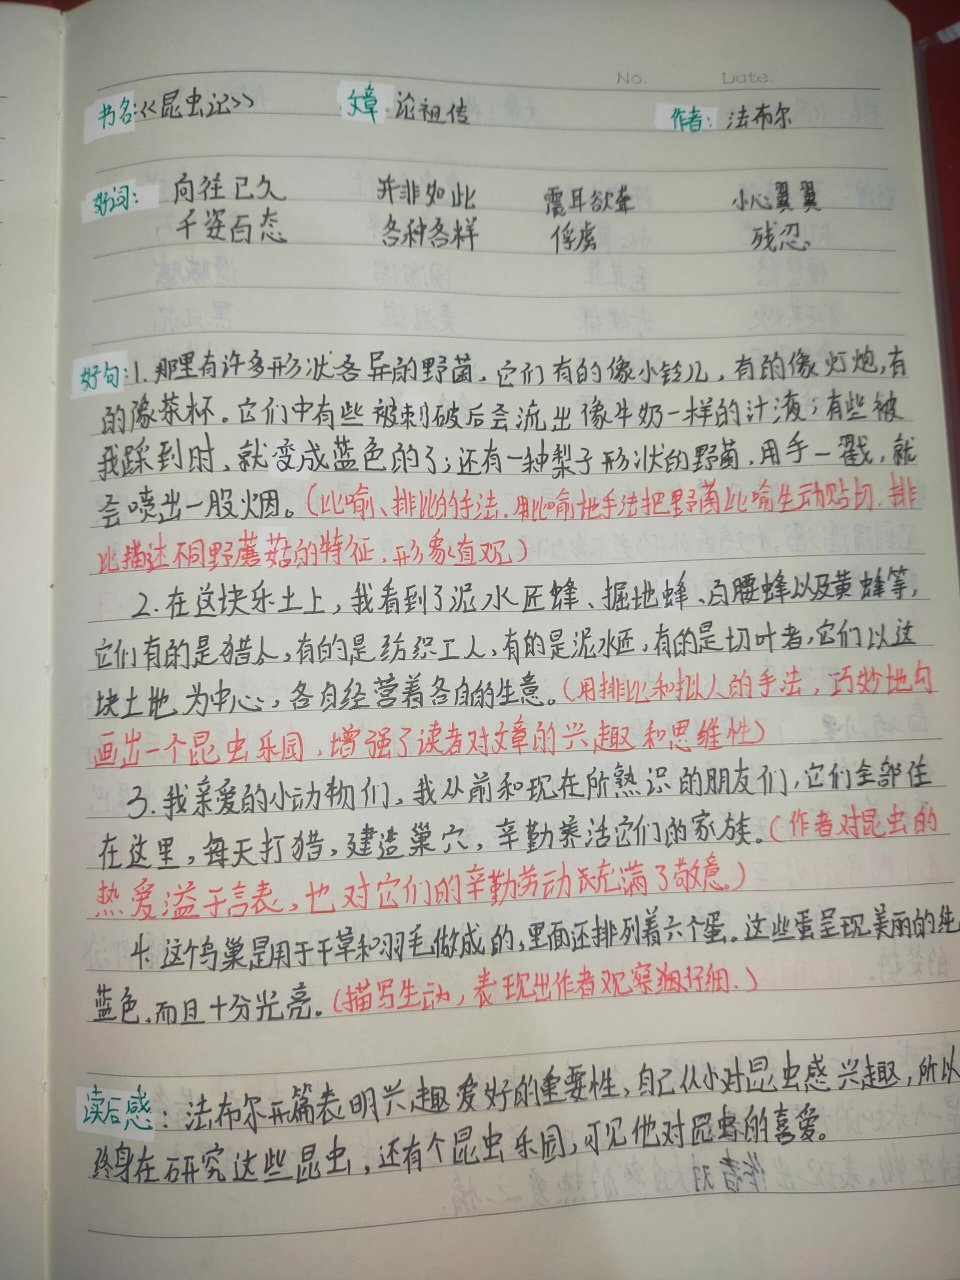 No. Date.
书名:《昆虫记》 文章 论祖传 作者: 法布尔
好词: 向往已久 并非如此 震耳欲聋 小心翼翼
千姿百态 各种各样 俘虏 残忍
好句:1.那里有许多形状各异的野菌,它们有的像小铃儿,有的像灯炮,有
的像茶杯。它们中有些被刺破后会流出像牛奶一样的汁液;有些被
我踩到时,就变成蓝色的了;还有一种梨子形状的野菌,用手一戳,就
会喷出一股烟。(比喻、排比的手法,用比喻地手法把野菌比喻生动贴切,排
比描述不同野蘑菇的特征,形象直观)
2.在这块乐土上,我看到了泥水匠蜂、掘地蜂、白腰蜂以及黄蜂等,
它们有的是猎人,有的是纺织工人,有的是泥水匠,有的是切叶者,它们以这
块土地为中心,各自经营着各自的生意。(用排比和拟人的手法,巧妙地勾
画出一个昆虫乐园,增强了读者对文章的兴趣和思维性)
3.我亲爱的小动物们,我从前和现在所熟识的朋友们,它们全部住
在这里,每天打猎,建造巢穴,辛勤养活它们的家族。(作者对昆虫的
热爱溢于言表,也对它们的辛勤劳动充满了敬意。)
4.这个鸟巢是用于干草和羽毛做成的,里面还排列着六个蛋。这些蛋呈现美丽的纯
蓝色,而且十分光亮。(描写生动,表现出作者观察细仔细.)
读后感:法布尔开篇表明兴趣爱好的重要性,自己从小对昆虫感兴趣,所以
终身在研究这些昆虫,还有个昆虫乐园,可见他对昆虫的喜爱。